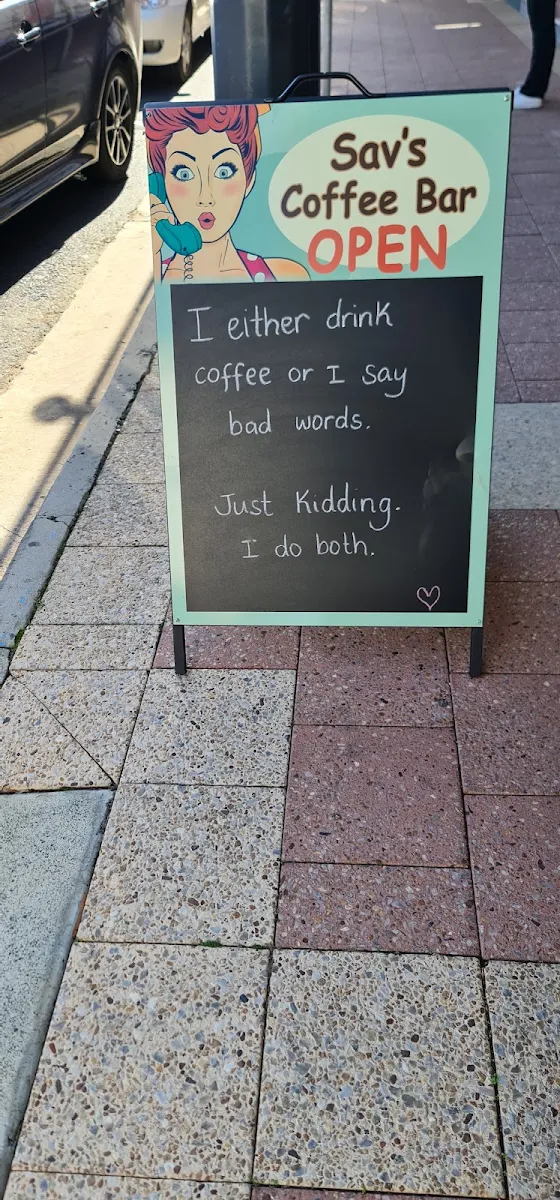 Sav's
Coffee Bar
OPEN
I either drink
coffee or I say
bad words.
Just Kidding.
I do both.